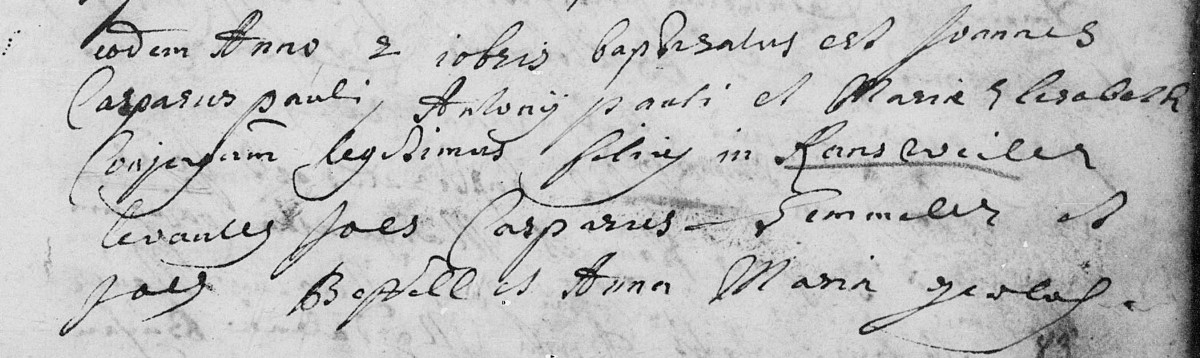 eodem Anno 2 iobris baptizatus est Joannes
Casparus pauli, Antonij pauli et Maria Elisabeth
Conjugum legitimus filius in Ransweiler
levantes Joes Casparus et
Joes et Anna Maria